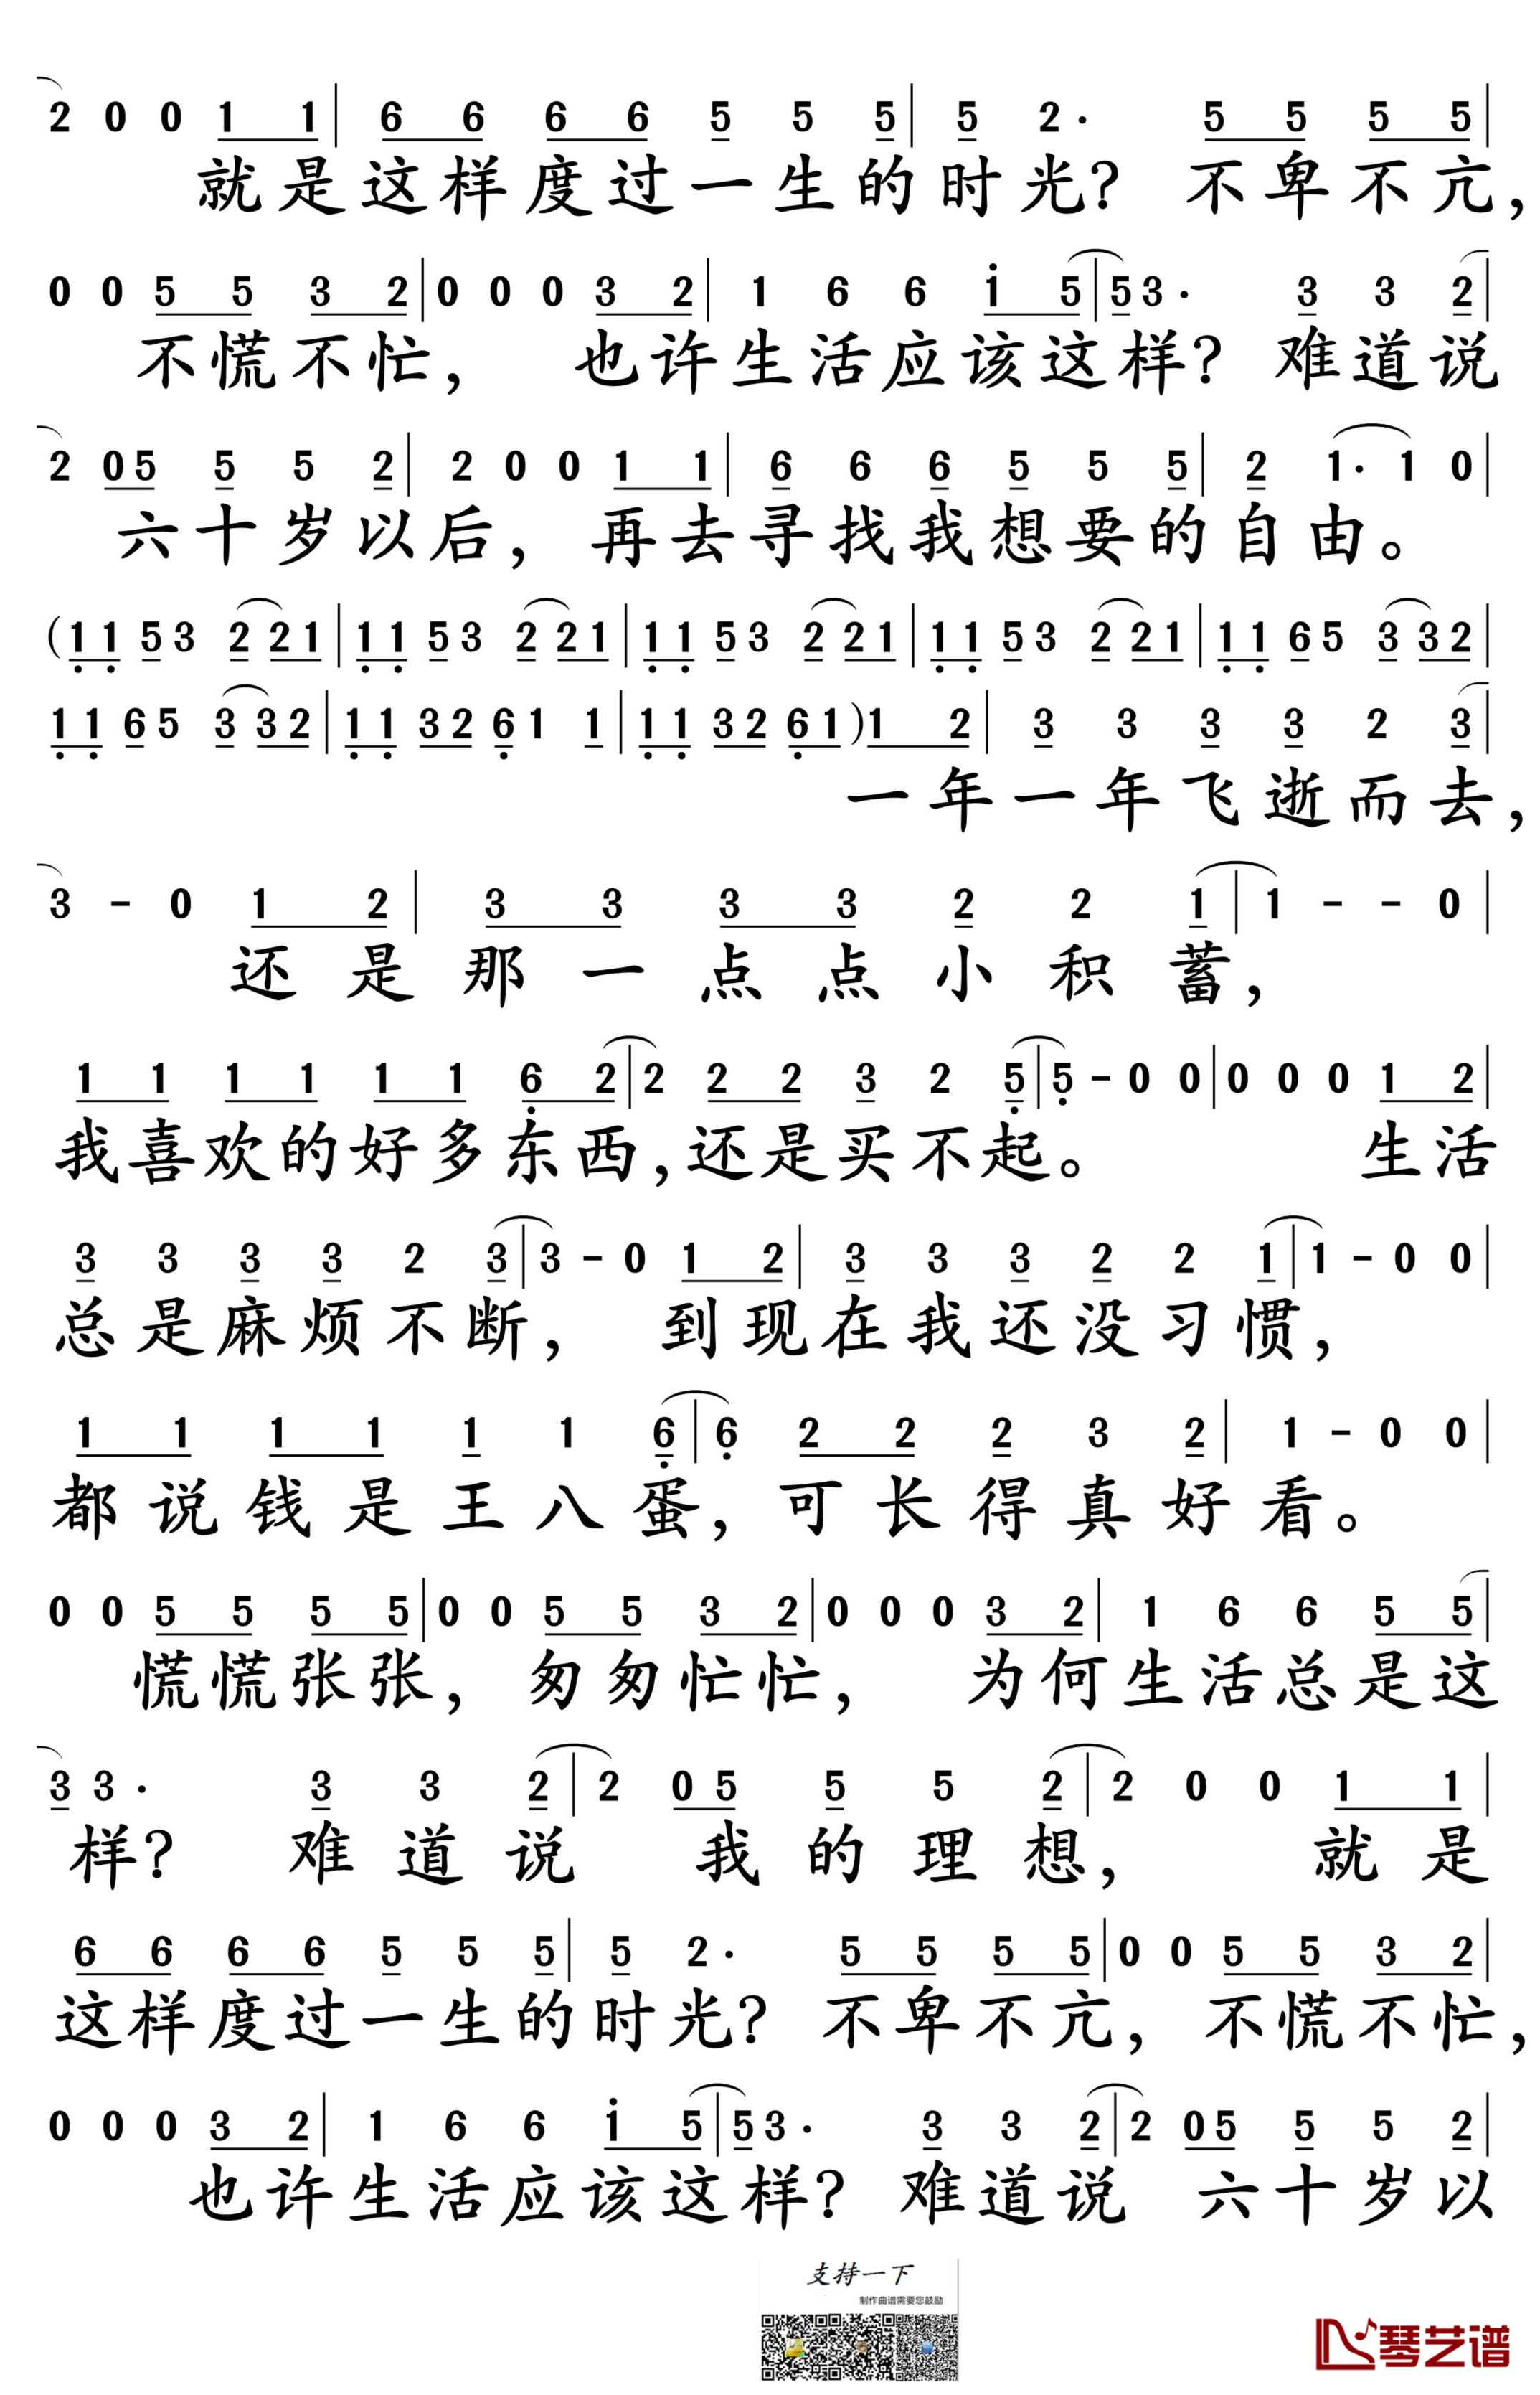 2 0 0 1 1 | 6 6 6 6 5 5 5 | 5 2 · 5 5 5 5 |
就是这样度过一生的时光? 不卑不亢,
0 0 5 5 3 2 | 0 0 0 3 2 | 1 6 6 i 5 | 5 3 · 3 3 2 |
不慌不忙, 也许生活应该这样? 难道说
2 0 5 5 5 2 | 2 0 0 1 1 | 6 6 6 5 5 5 | 2 1 · 1 0 |
六十岁以后, 再去寻找我想要的自由。
( 1 1 5 3 2 2 1 | 1 1 5 3 2 2 1 | 1 1 5 3 2 2 1 | 1 1 5 3 2 2 1 | 1 1 6 5 3 3 2 |
1 1 6 5 3 3 2 | 1 1 3 2 6 1 1 | 1 1 3 2 6 1 ) 1 2 | 3 3 3 3 2 3 |
一年一年飞逝而去,
3 - 0 1 2 | 3 3 3 3 2 2 1 | 1 - - 0 |
还是那一点点小积蓄,
1 1 1 1 1 1 6 2 | 2 2 2 3 2 5 | 5 - 0 0 | 0 0 0 1 2 |
我喜欢的好多东西,还是买不起。 生活
3 3 3 3 2 3 | 3 - 0 1 2 | 3 3 3 2 2 1 | 1 - 0 0 |
总是麻烦不断, 到现在我还没习惯,
1 1 1 1 1 1 6 | 6 2 2 2 3 2 | 1 - 0 0 |
都说钱是王八蛋,可长得真好看。
0 0 5 5 5 5 | 0 0 5 5 3 2 | 0 0 0 3 2 | 1 6 6 5 5 |
慌慌张张, 匆匆忙忙, 为何生活总是这
3 3 · 3 3 2 | 2 0 5 5 5 2 | 2 0 0 1 1 |
样? 难道说 我的理想, 就是
6 6 6 6 5 5 5 | 5 2 · 5 5 5 5 | 0 0 5 5 3 2 |
这样度过一生的时光? 不卑不亢, 不慌不忙,
0 0 0 3 2 | 1 6 6 i 5 | 5 3 · 3 3 2 | 2 0 5 5 5 2 |
也许生活应该这样? 难道说 六十岁以
支持一下
制作曲谱需要您鼓励
琴艺谱